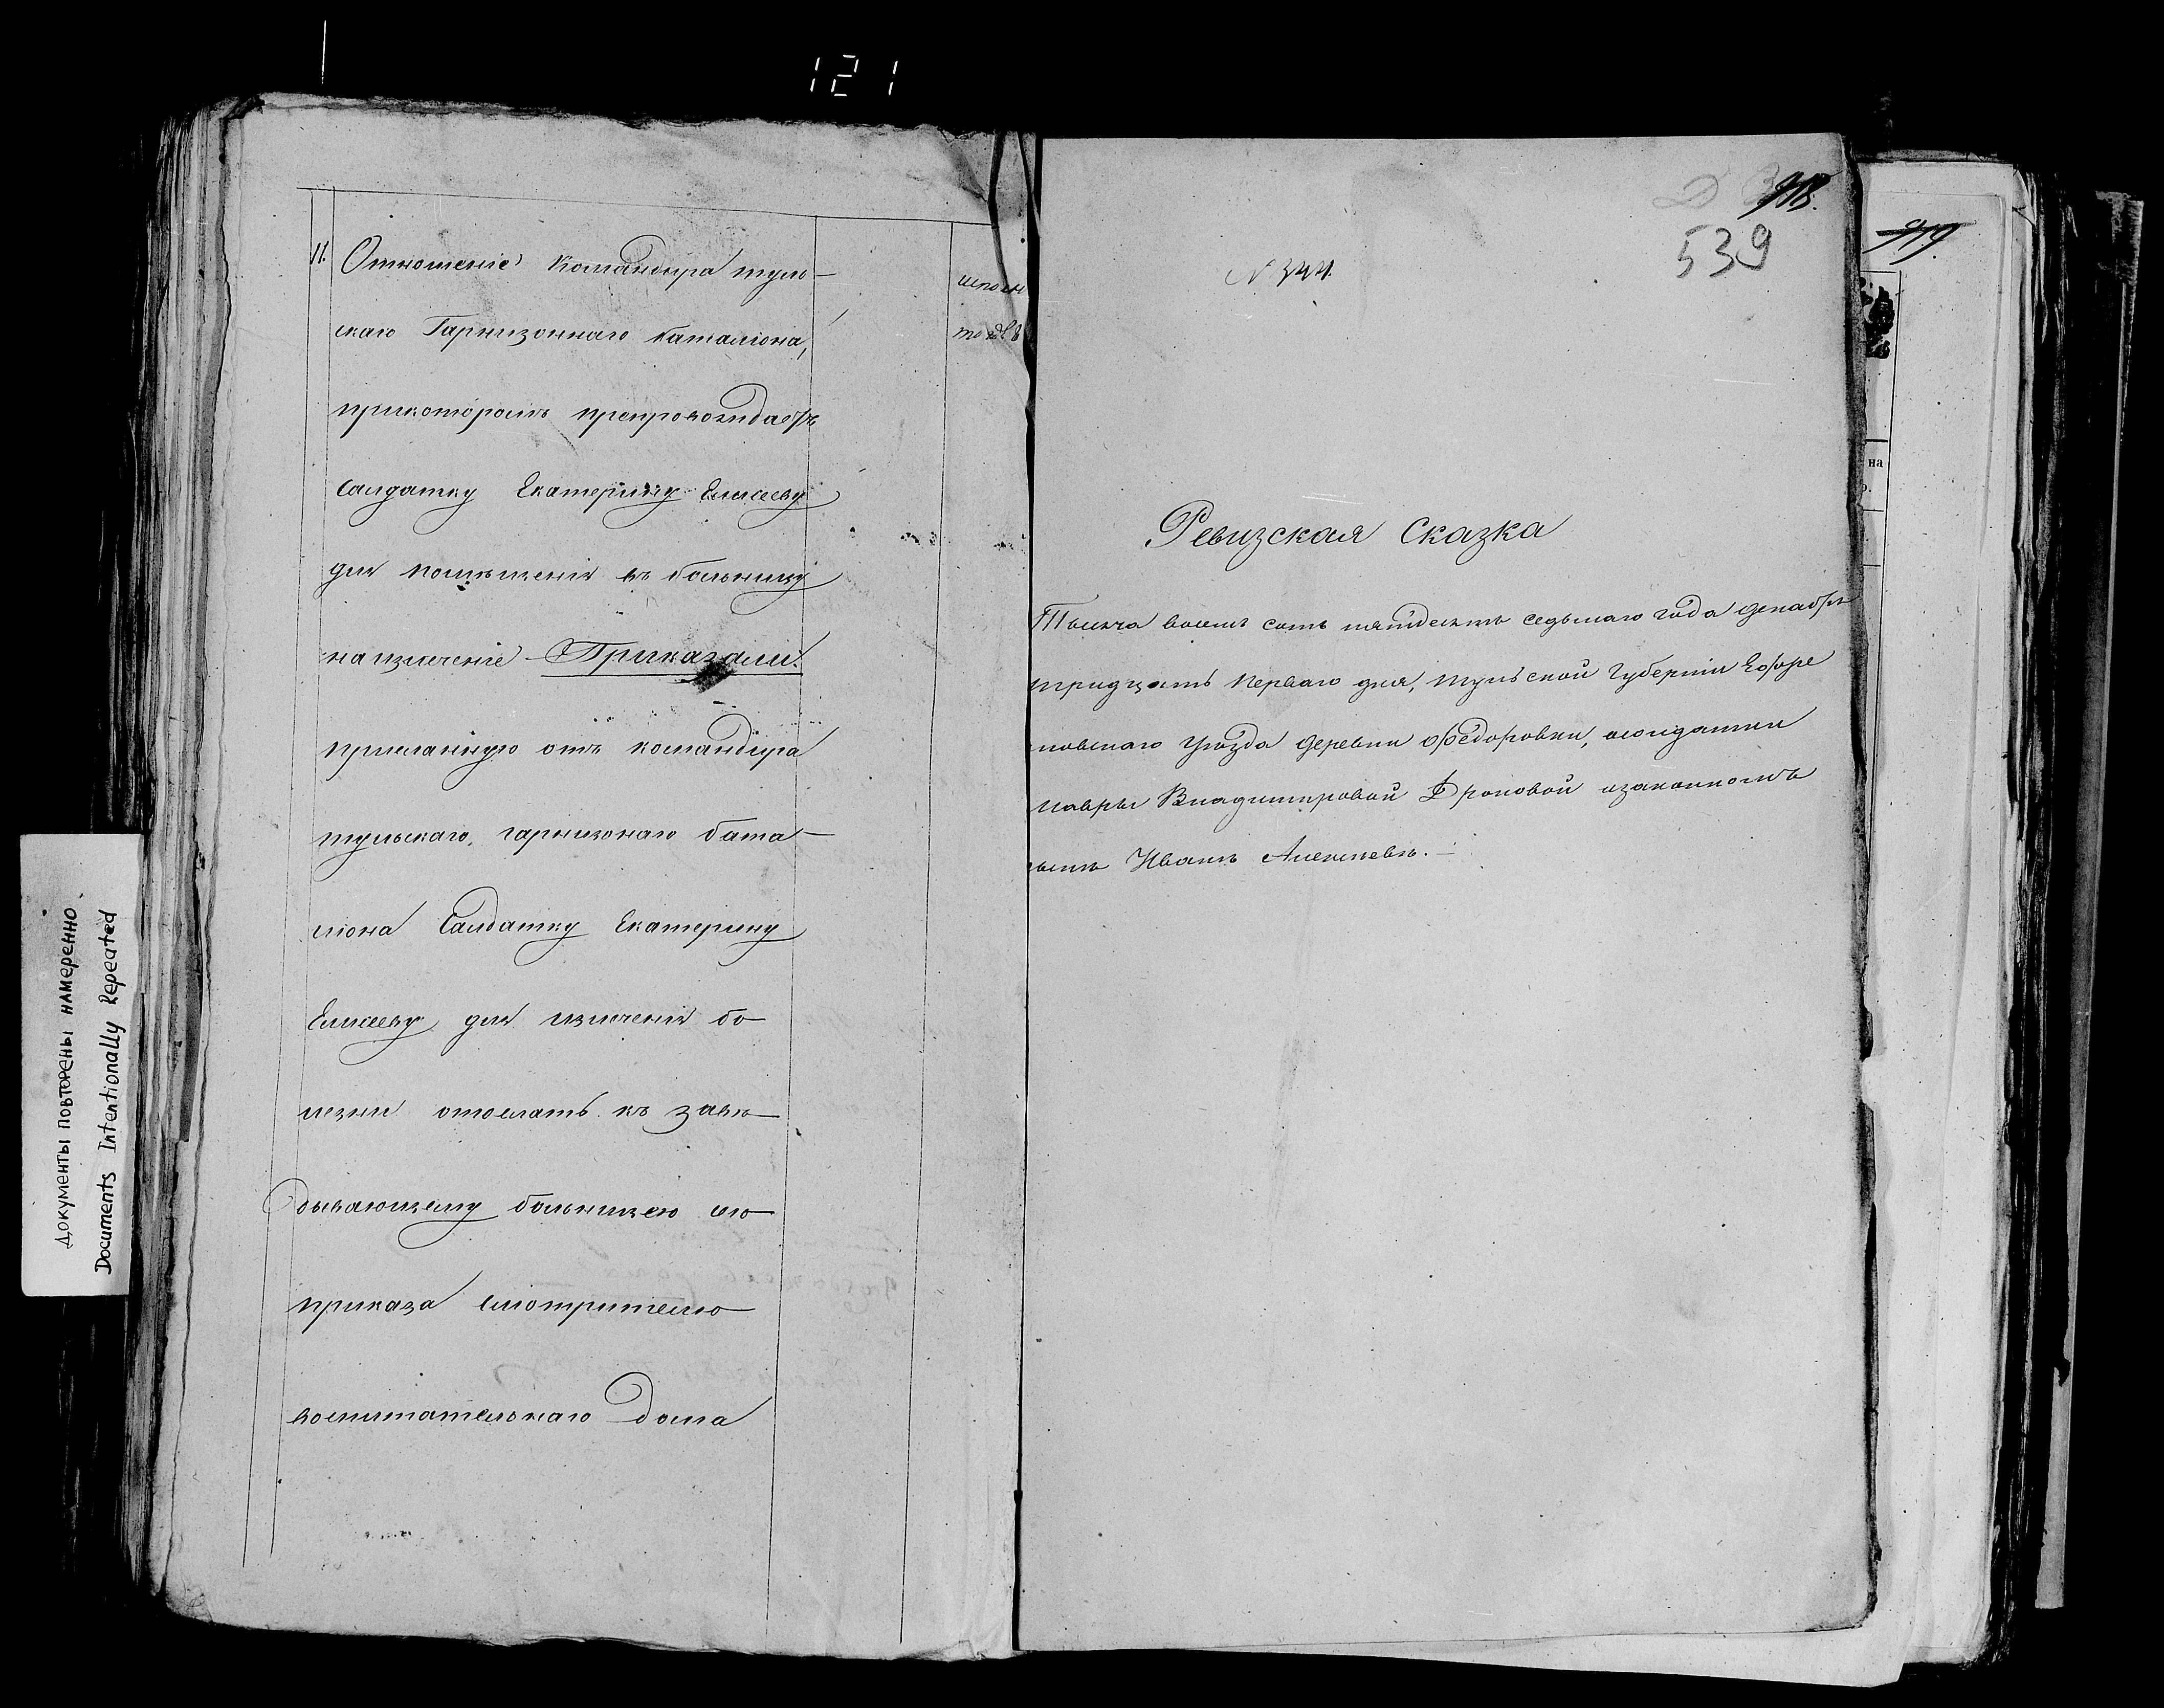 121
11. Отношеніе Командира туль-
скаго Гарнизоннаго баталіона,
прикоторомъ препровождаетъ
Салдатку Екатерину Елисееву
для помѣщенія въ больницу
на излеченіе - Приказали:
присланную отъ командира
тульскаго гарнизонаго бата-
ліона Салдатку Екатерину
Елисееву для излеченія бо-
лезни отослать къ завѣ-
дывающему больницею сего
приказа смотрителю
воспитательнаго Дома
исполн
того
N 344.
918.
539
Ревизская Сказка
Тысяча восемь сотъ пятдесятъ седьмаго года декабря
тридцать перваго дня, тульской Губерніи Ефре
мовскаго уѣзда деревни Федоровки, солдатки
Мавры Владимировой Дроновой
сынѣ Иванѣ Алексѣевѣ. -
919.
на
Документы повторены намеренно
Documents Intentionally Repeated